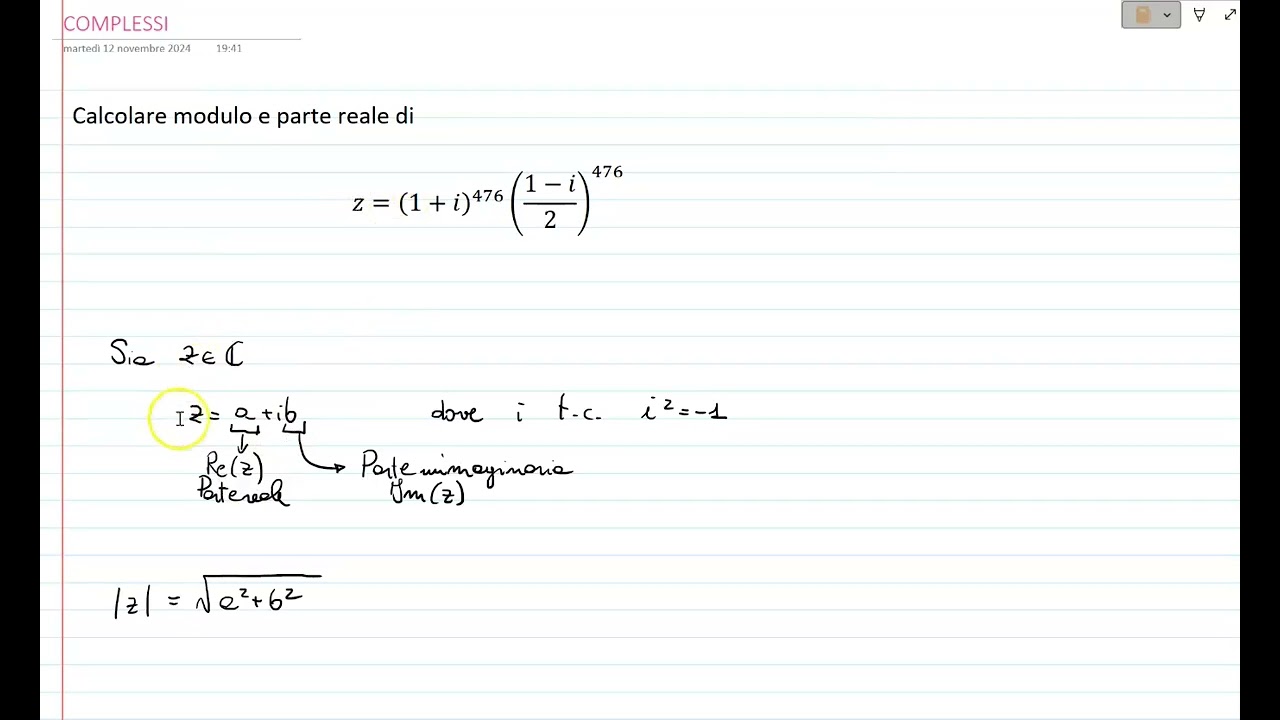 COMPLESSI
martedì 12 novembre 2024 19:41
Calcolare modulo e parte reale di
z = (1 + i)^476 ((1 − i)/2)^476
Sia z ∈ ℂ
z = a + ib dove i t.c. i² = -1
Re(z) Parte immaginaria
Parte reale Im(z)
|z| = √(a² + b²)